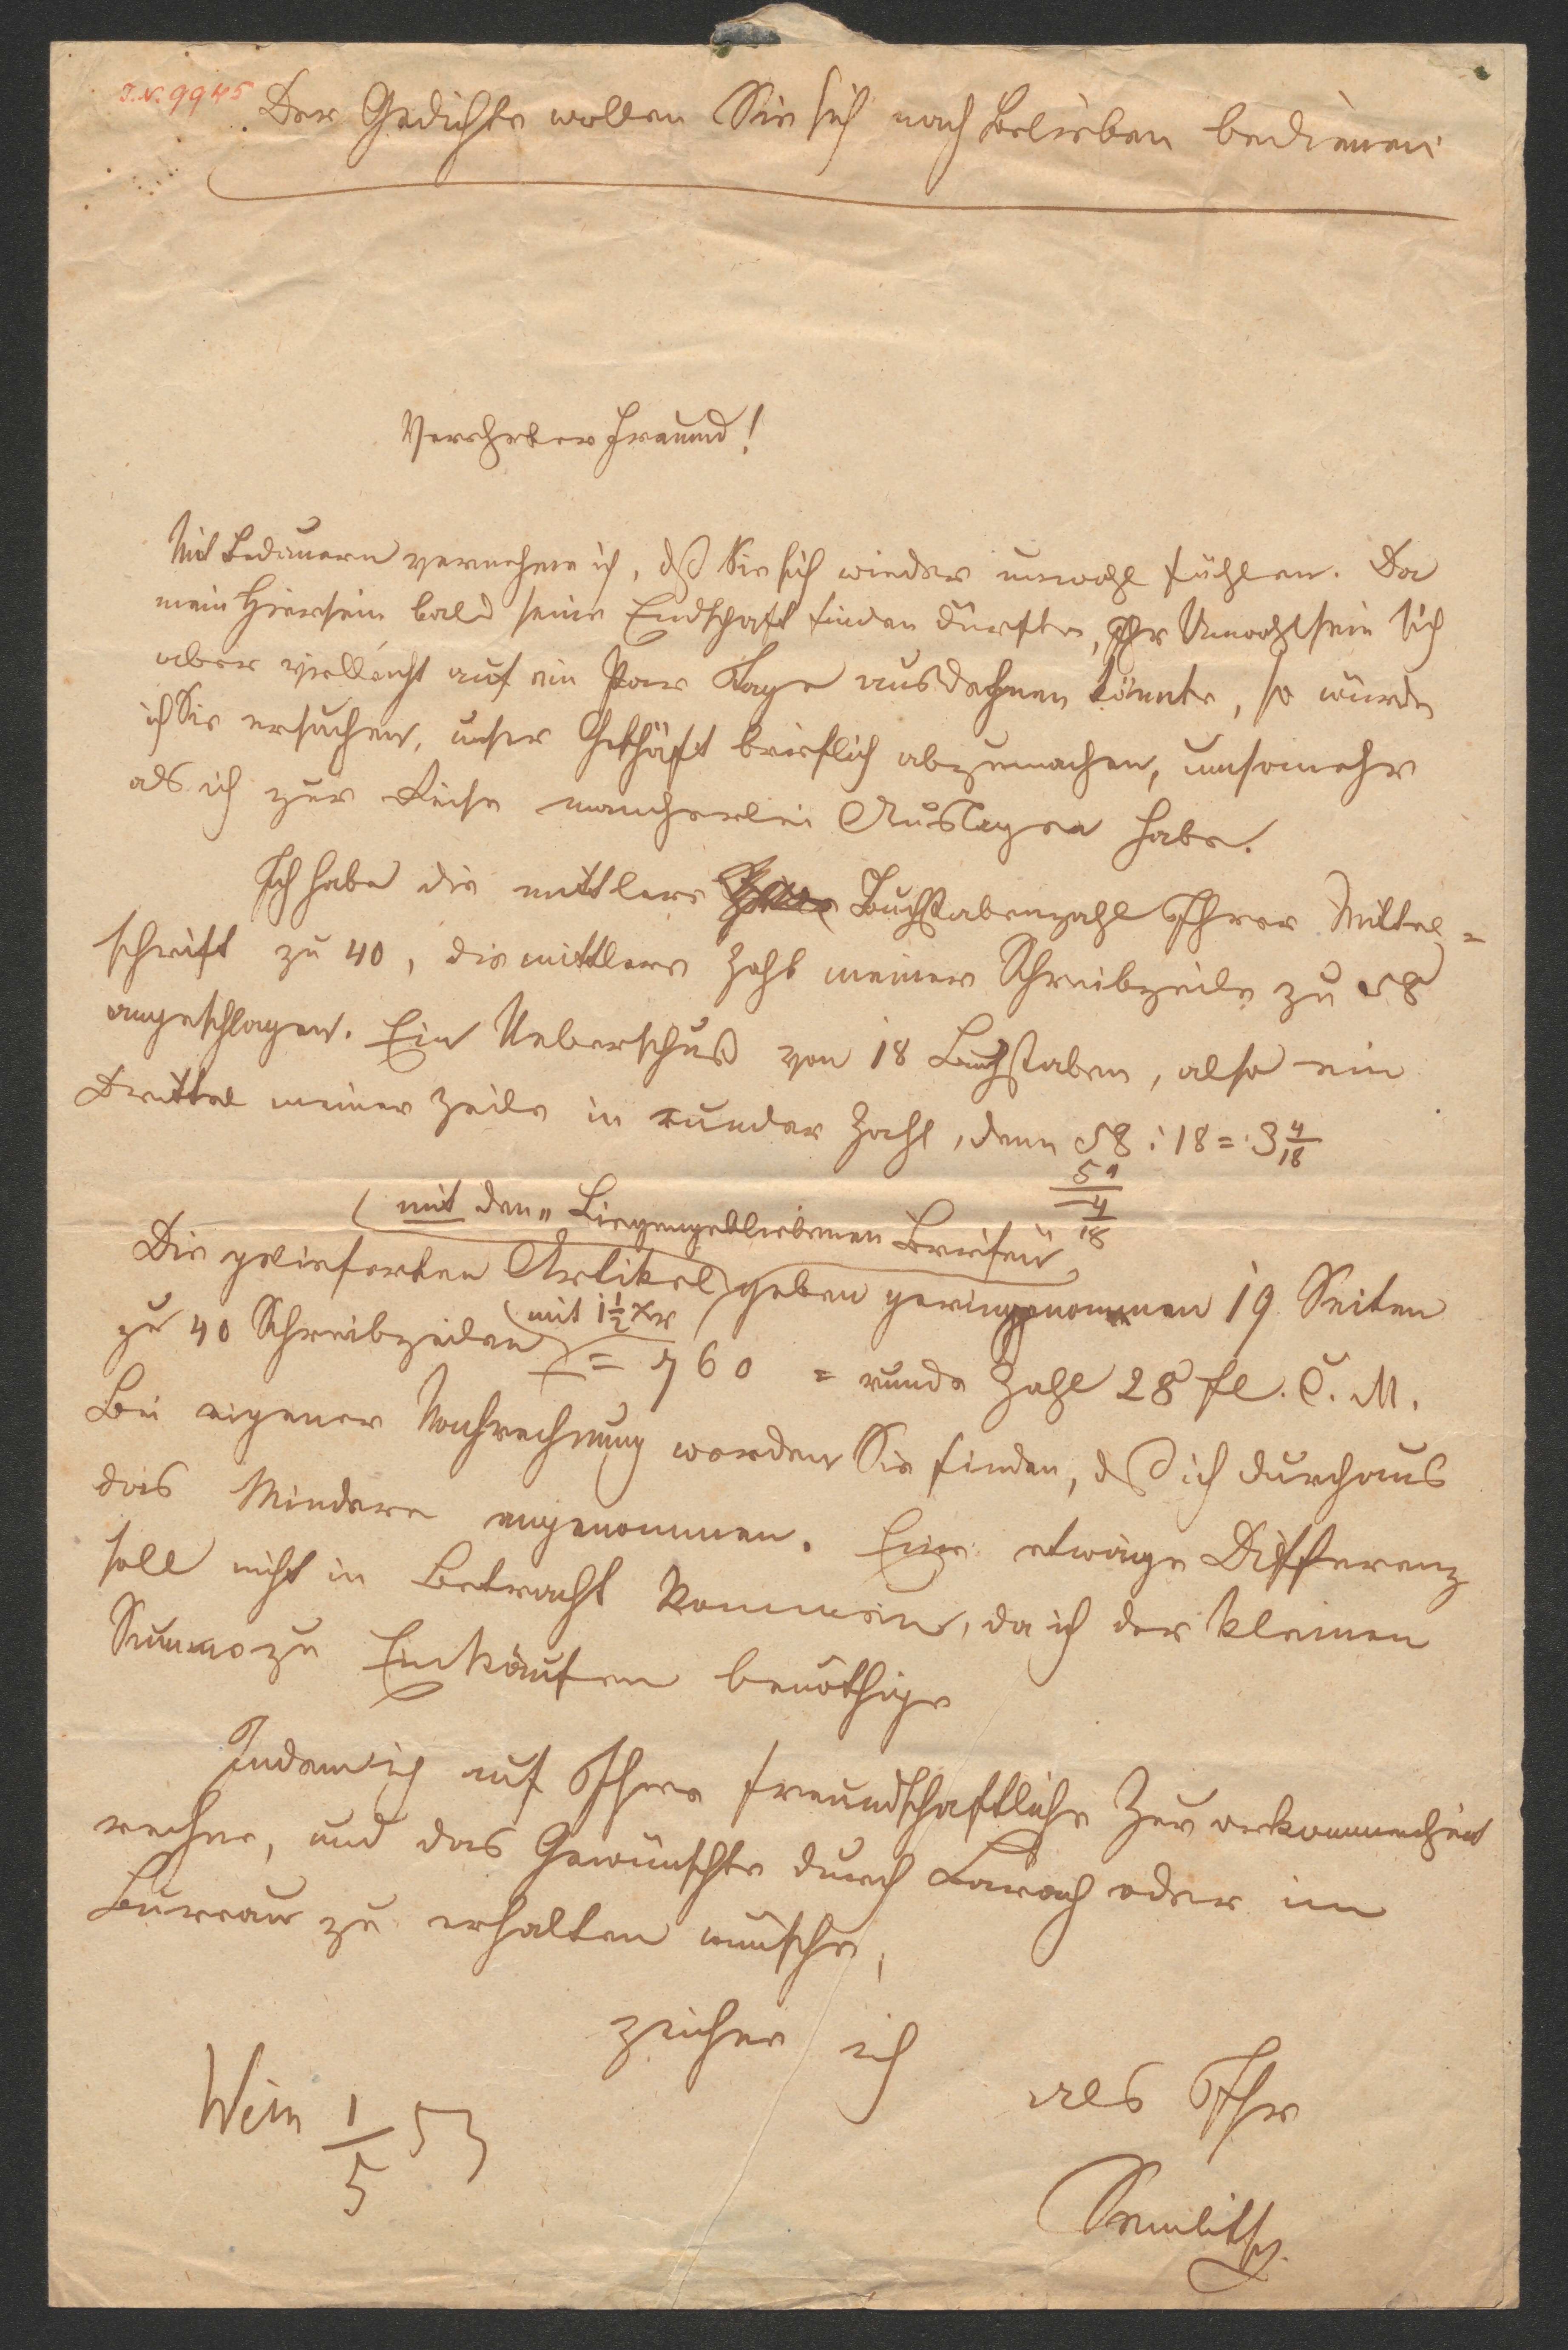 I.N. 9945
Der Gedichte wollen Sie sich nach Belieben bedienen
Verehrter Freund!
Mit Bedauern vernehme ich, dß Sie sich wieder unwohl fühlen. Da
mein Hiersein bald seine Endschaft finden dürfte, Ihr Unwohlsein sich
aber vielleicht auf ein Paar Tage ausdehnen könnte, so würde
ich Sie ersuchen, unser Geschäft brieflich abzumachen, umsomehr
als ich zur Reise mancherlei Auslagen habe.
Ich habe die mittlere Buchstabenzahl Ihrer Mittel=
schrift zu 40, die mittlere Zahl meiner Schreibzeile zu 58
angeschlagen. Ein Ueberschuß von 18 Buchstaben, also ein
Drittel meiner Zeile in runder Zahl, denn 58 : 18 = 3 4/18
54
4
18
(mit den „Liegengebliebenen Briefen“)
Die gelieferten Artikel geben geringgenommen 19 Seiten
zu 40 Schreibzeilen (mit 1 1/2 xr) = 760 = runde Zahl 28 fl. C. M.
Bei eigener Nachrechnung werden Sie finden, dß ich durchaus
das Mindere angenommen. Eine etwaige Differenz
soll nicht in Betracht kommen, da ich der kleinen
Summe zu Einkäufen benöthige
Indem ich auf Ihre freundschaftliche Zuvorkommenheit
rechne, und das Gewünschte durch oder im
Bureau zu erhalten wünsche,
zeichne ich
als Ihr
Wien 1/5 53